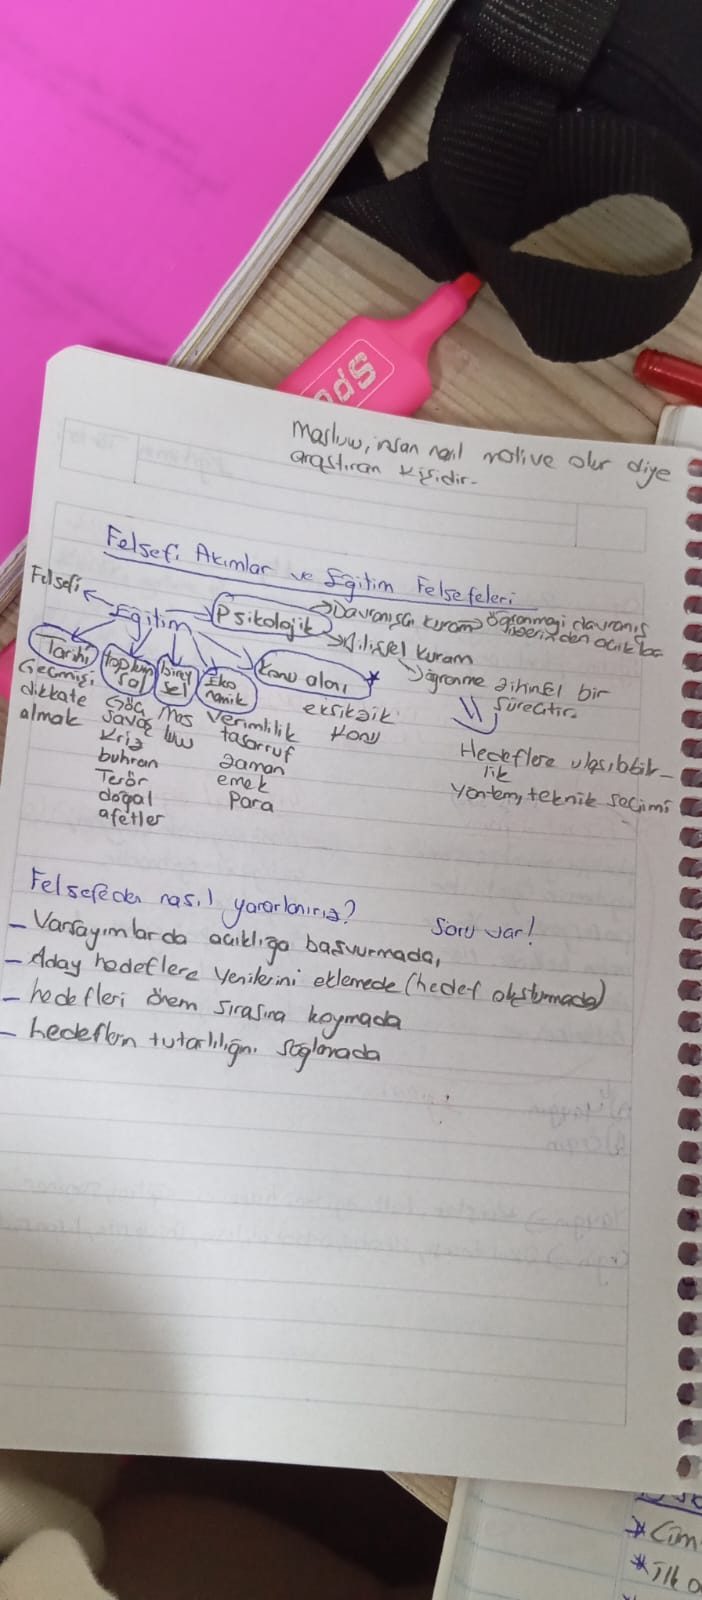 Masluw, insan nasıl motive olur diye
araştıran kişidir.
Felsefi Akımlar ve Eğitim Felsefeleri
Felsefi
Eğitim
Psikolojik
Davranışçı kuram
öğrenmeyi davranış
üzerinden açıklar
Bilişsel kuram
öğrenme zihinsel bir
süreçtir.
Hedeflere ulaşılabilir_
lik
yöntem, teknik seçimi
Tarihi
Geçmişi
dikkate
almak
toplum
sal
Göç
savaş
kriz
buhran
Terör
doğal
afetler
birey
sel
Mas
luw
Eko
nomik
Verimlilik
tasarruf
zaman
emek
para
Konu alanı
eksiksiz
konu
Felsefeden nasıl yararlanırız?
Soru var!
_ Varsayımlarda açıklığa başvurmada,
_ Aday hedeflere yenilerini eklemede (hedef oluşturmada)
_ hedefleri önem sırasına koymada
_ hedeflerin tutarlılığını sağlamada
SPO
* Cüm
* İlk